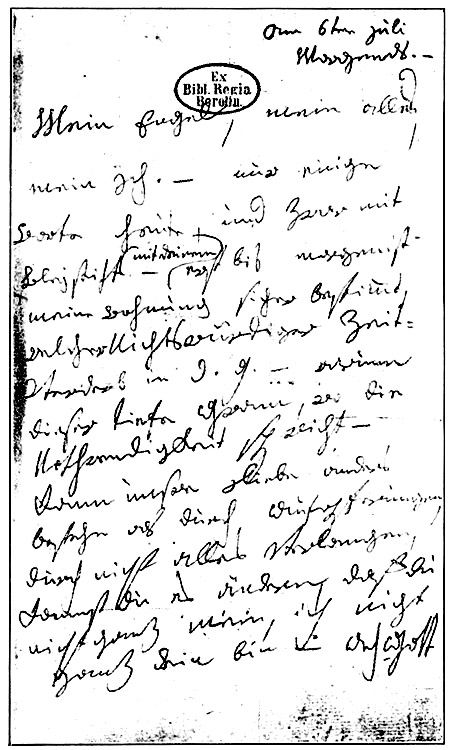 am 6ten juli
Morgends. —
Ex
Bibl. Regia
Berolin.
Mein Engel, mein alles,
mein Ich. — nur einige
worte heute, und zwar mit
bleystift — (mit deinem)
erst bis morgen ist
meine wohnung sicher bestimmt,
welcher Nichtswürdiger Zeit-
Verderb in d. g. — warum
dieser tiefe Gram, wo die
Nothwendigkeit spricht —
Kann unsre Liebe anders
bestehn als durch Aufopferungen,
durch nicht alles Verlangen,
Kannst du es ändern, daß du
nicht ganz mein, ich nicht
ganz dein bin — Ach Gott